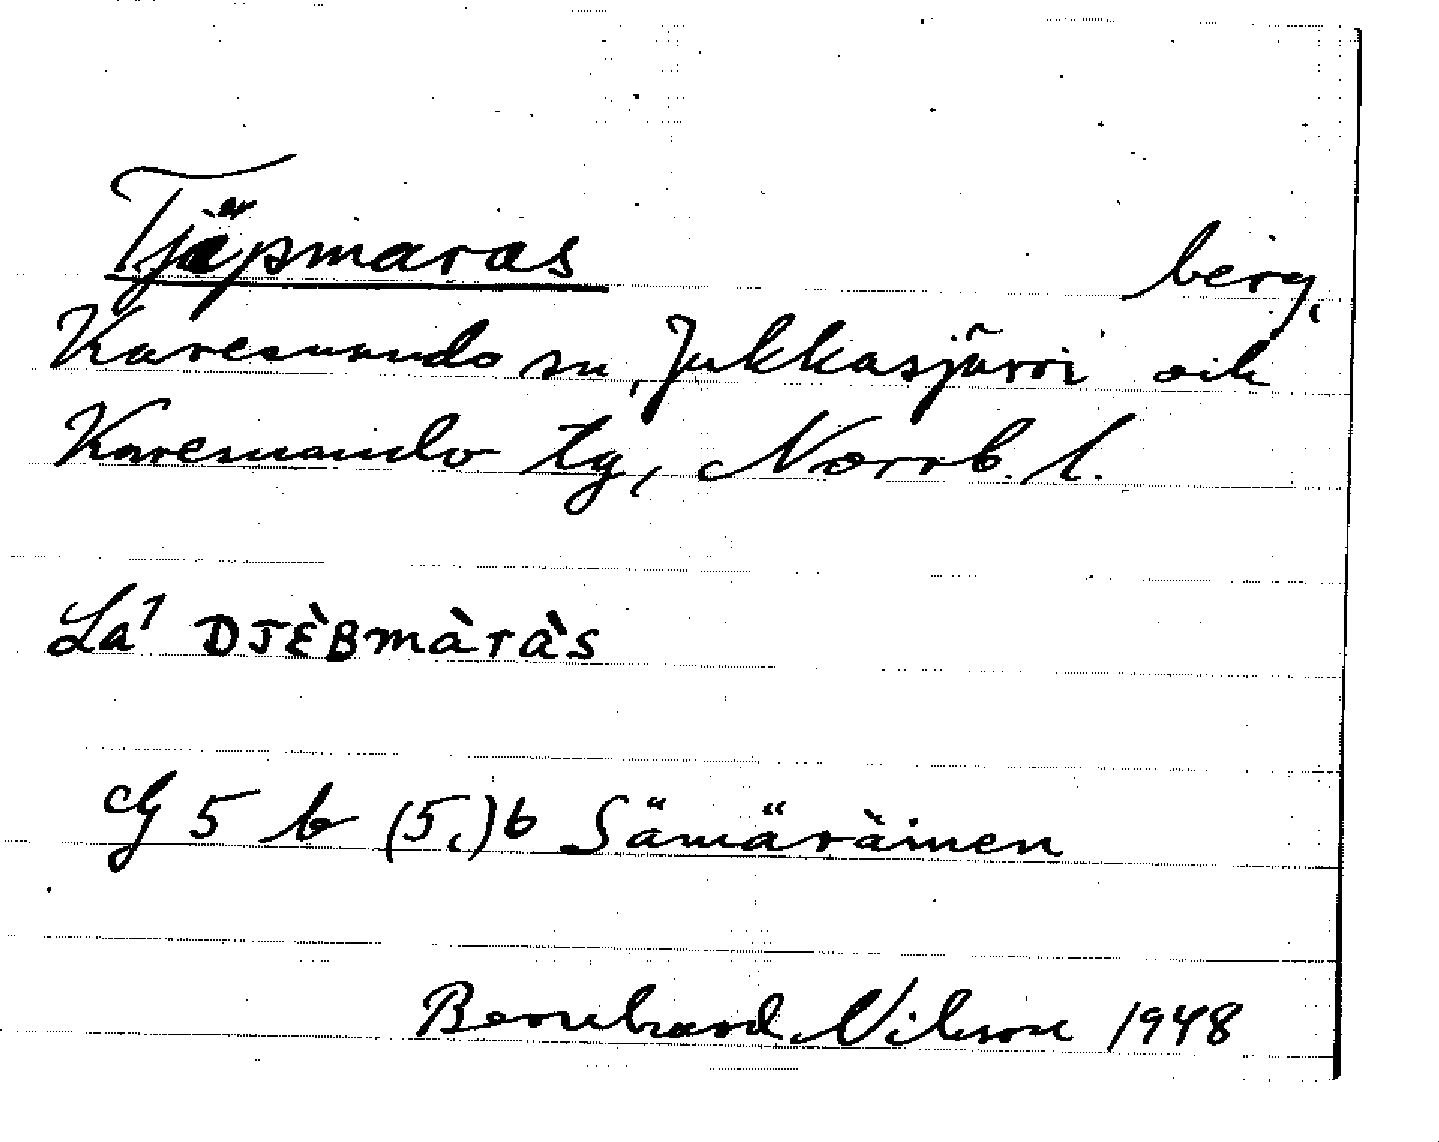 Tjäpmaras berg,
Karesuando sn, Jukkasjärvi och
Karesuando tg, Norrb. l.
La¹ DJÈBmàràs
cf 5 b (5.) b Sämäräinen
Bernhard Nilsson 1948